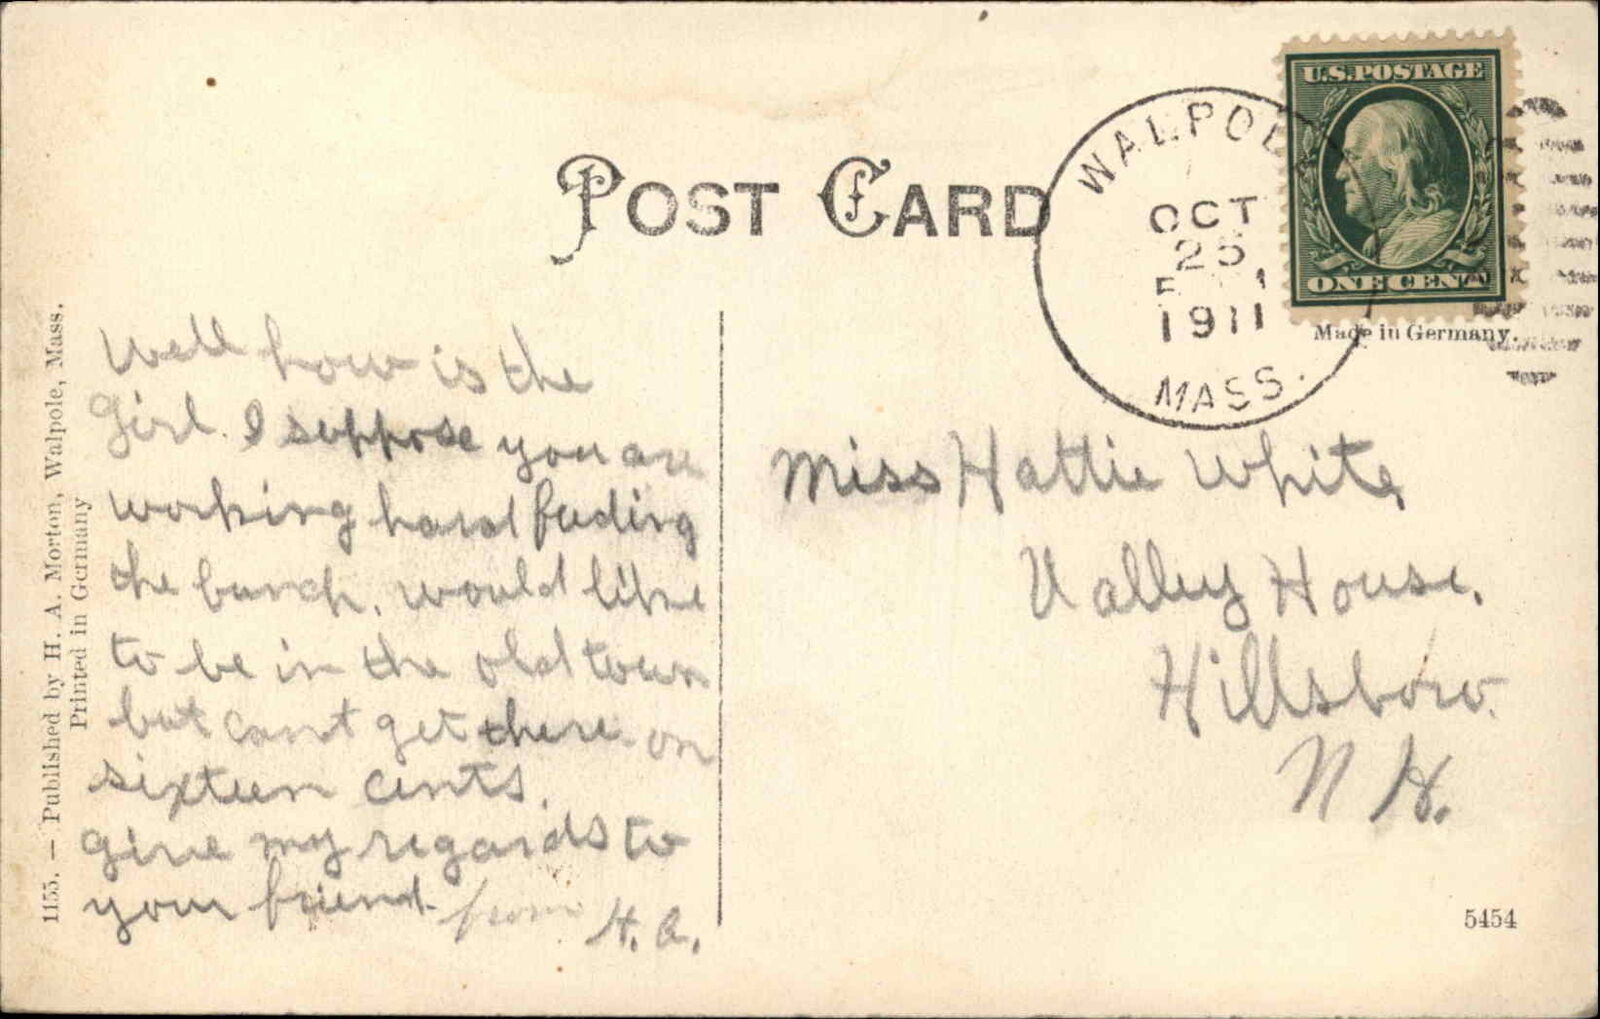 POST CARD
U.S. POSTAGE
ONE CENT
WALPOLE
OCT
25
1911
MASS.
Made in Germany.
1155. — Published by H. A. Morton, Walpole, Mass.
Printed in Germany
Well how is the
Girl. I suppose you are
working hard feeding
the bunch. would like
to be in the old town
but cant get there on
sixteen cents.
give my regards to
your friend from H. A.
Miss Hattie White
Valley House.
Hillsboro.
N. H.
5454